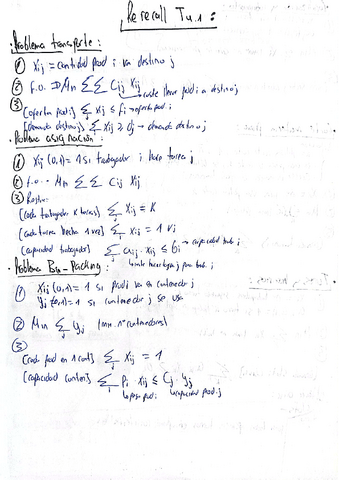 Re recall Tu.1:
· Problema transporte:
① Xij = cantidad prod i va destino j
② F.O. ⇒ Min ∑∑ Cij Xij
↳ coste llevar prod i a destino j
③ [oferta prod i] ∑ Xij ≤ fi → oferta prod i
[demanda destino j] ∑ Xij ≥ Dj → demanda destino j
· Problema asignación:
① Xij (0,1) = 1 si trabajador i hace tarea j
② F.O. Min ∑∑ Cij Xij
③ Restric:
[cada trabajador K tareas] ∑ Xij = K
[cada tarea hecha 1 vez] ∑ Xij = 1 ∀j
[capacidad trabajador] ∑ aij · Xij ≤ bi → capacidad trab. i
tarea j para trab. i
· Problema Bin-Packing:
① Xij (0,1) = 1 si prod i va en contenedor j
Yj (0,1) = 1 si contenedor j se usa
② Min ∑ Yj [min. nº contenedores]
③
[cada prod en 1 cont] ∑ Xij = 1
[capacidad conten] ∑ Pi · Xij ≤ Cj · Yj
↳ peso prod i ↳ capacidad